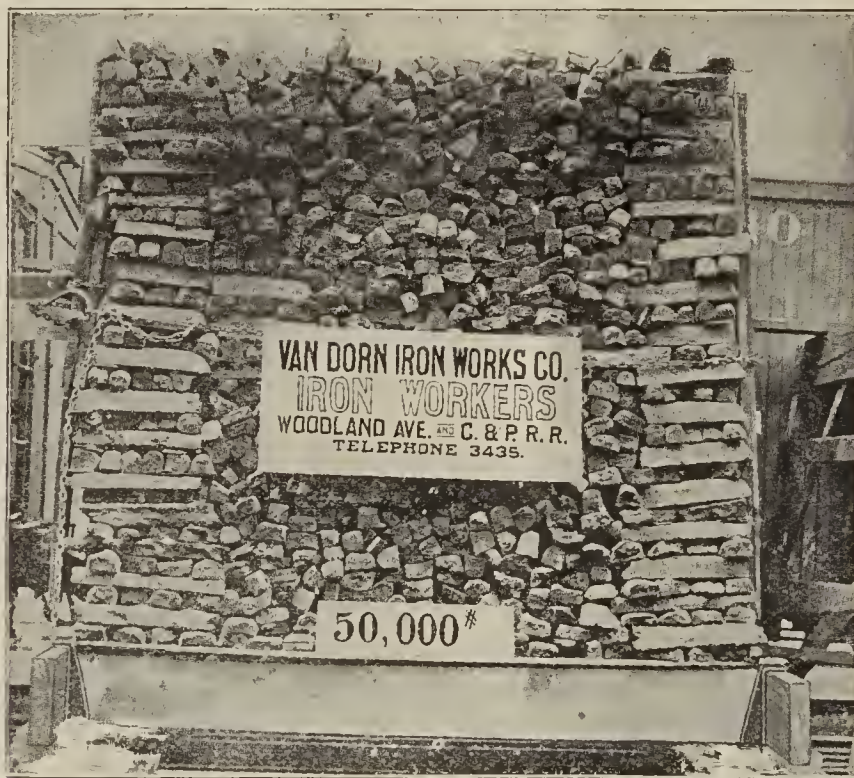 VAN DORN IRON WORKS CO.
IRON WORKERS
WOODLAND AVE. AND C. & P. R. R.
TELEPHONE 3435.
50,000#